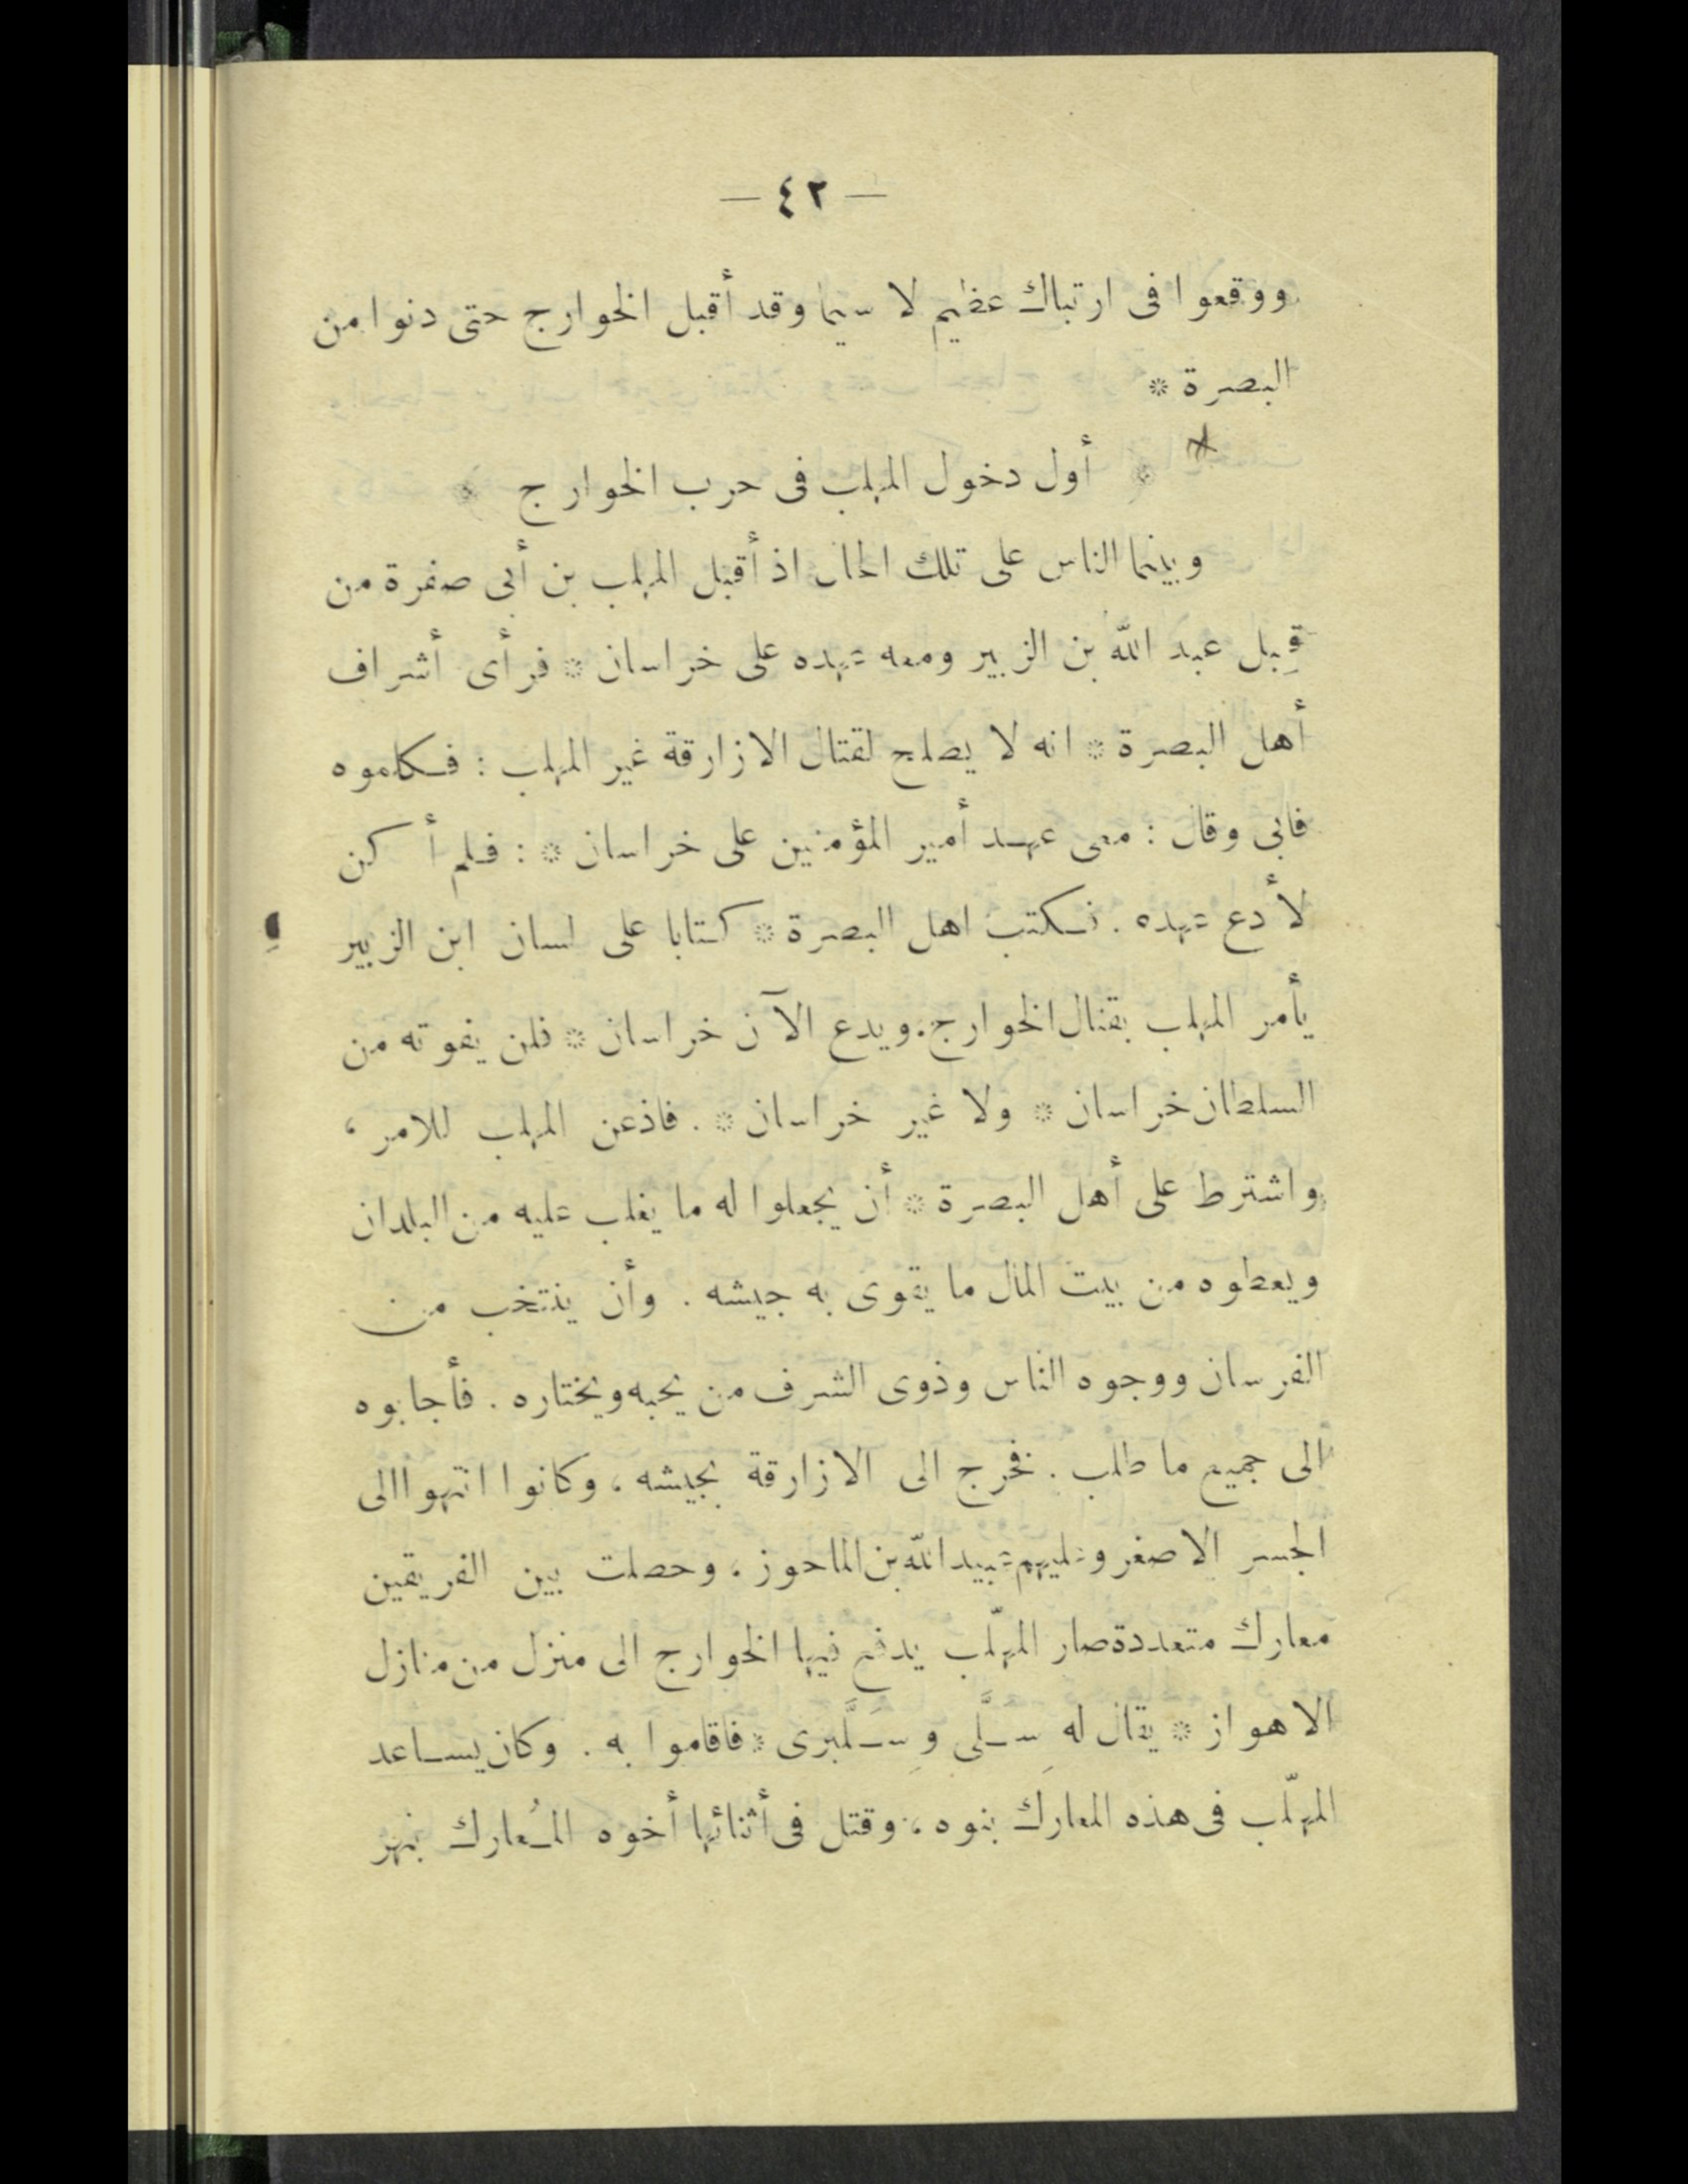 — ٤٢ —
ووقعوا فى ارتباك عظيم لا سيما وقد أقبل الخوارج حتى دنوا من
البصرة *
* أول دخول المهلب فى حرب الخوارج *
وبينما الناس على تلك الحال اذ أقبل المهلب بن أبى صفرة من
قِبل عبد الله بن الزبير ومعه عهده على خراسان * فرأى أشراف
أهل البصرة * انه لا يصلح لقتال الازارقة غير المهلب : فكلموه
فابى وقال : معى عهد أمير المؤمنين على خراسان * : فلم أكن
لأدع عهده . فكتب اهل البصرة * كتابا على لسان ابن الزبير
يأمر المهلب بقتال الخوارج . ويدع الآن خراسان * فلن يفوته من
السلطان خراسان * ولا غير خراسان * . فاذعن المهلب للامر ،
واشترط على أهل البصرة * أن يجعلوا له ما يغلب عليه من البلدان
ويعطوه من بيت المال ما يقوى به جيشه . وأن ينتخب من
الفرسان ووجوه الناس وذوى الشرف من يحبه ويختاره . فأجابوه
الى جميع ما طلب . فخرج الى الازارقة بجيشه ، وكانوا انتهوا الى
الجسر الاصغر وعليهم عبيد الله بن الماحوز ، وحصلت بين الفريقين
معارك متعددة صار المهلّب يدفع فيها الخوارج الى منزل من منازل
الاهواز * يقال له سِلَّى وسِلَّبرى * فاقاموا به . وكان يساعد
المهلّب فى هذه المعارك بنوه ، وقتل فى أثنائها أخوه المُعارك بنهر